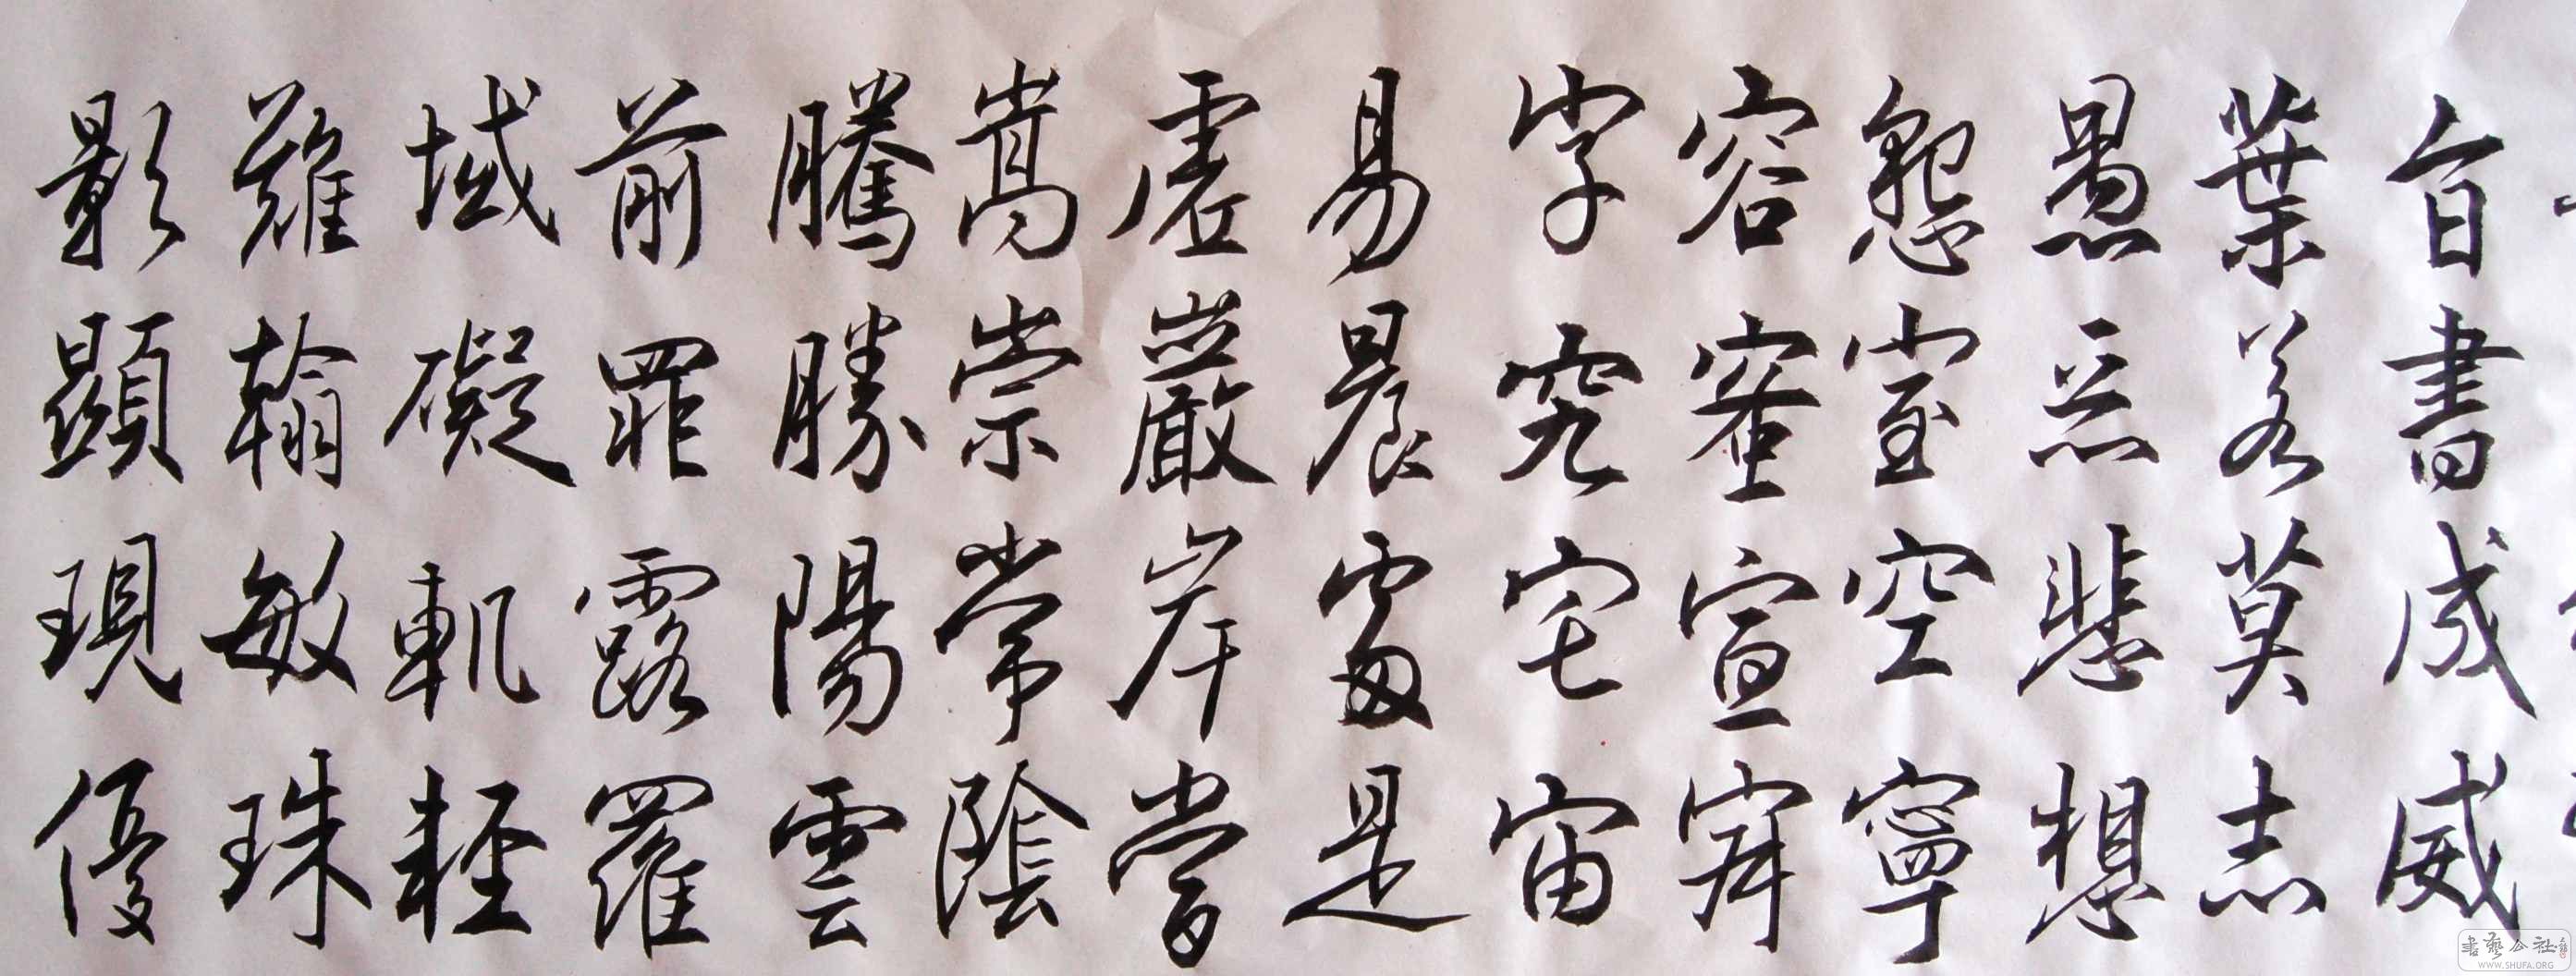 旨書成威
葉若莫志
愚惡悲想
怨室空寧
容宣
字究宅宙
易晨是
虛嚴岸當
嵩崇常陰
騰勝陽雲
前罪露羅
域礙軌輕
難翰敏珠
影顯現優
書藝公社
WWW.SHUFA.ORG